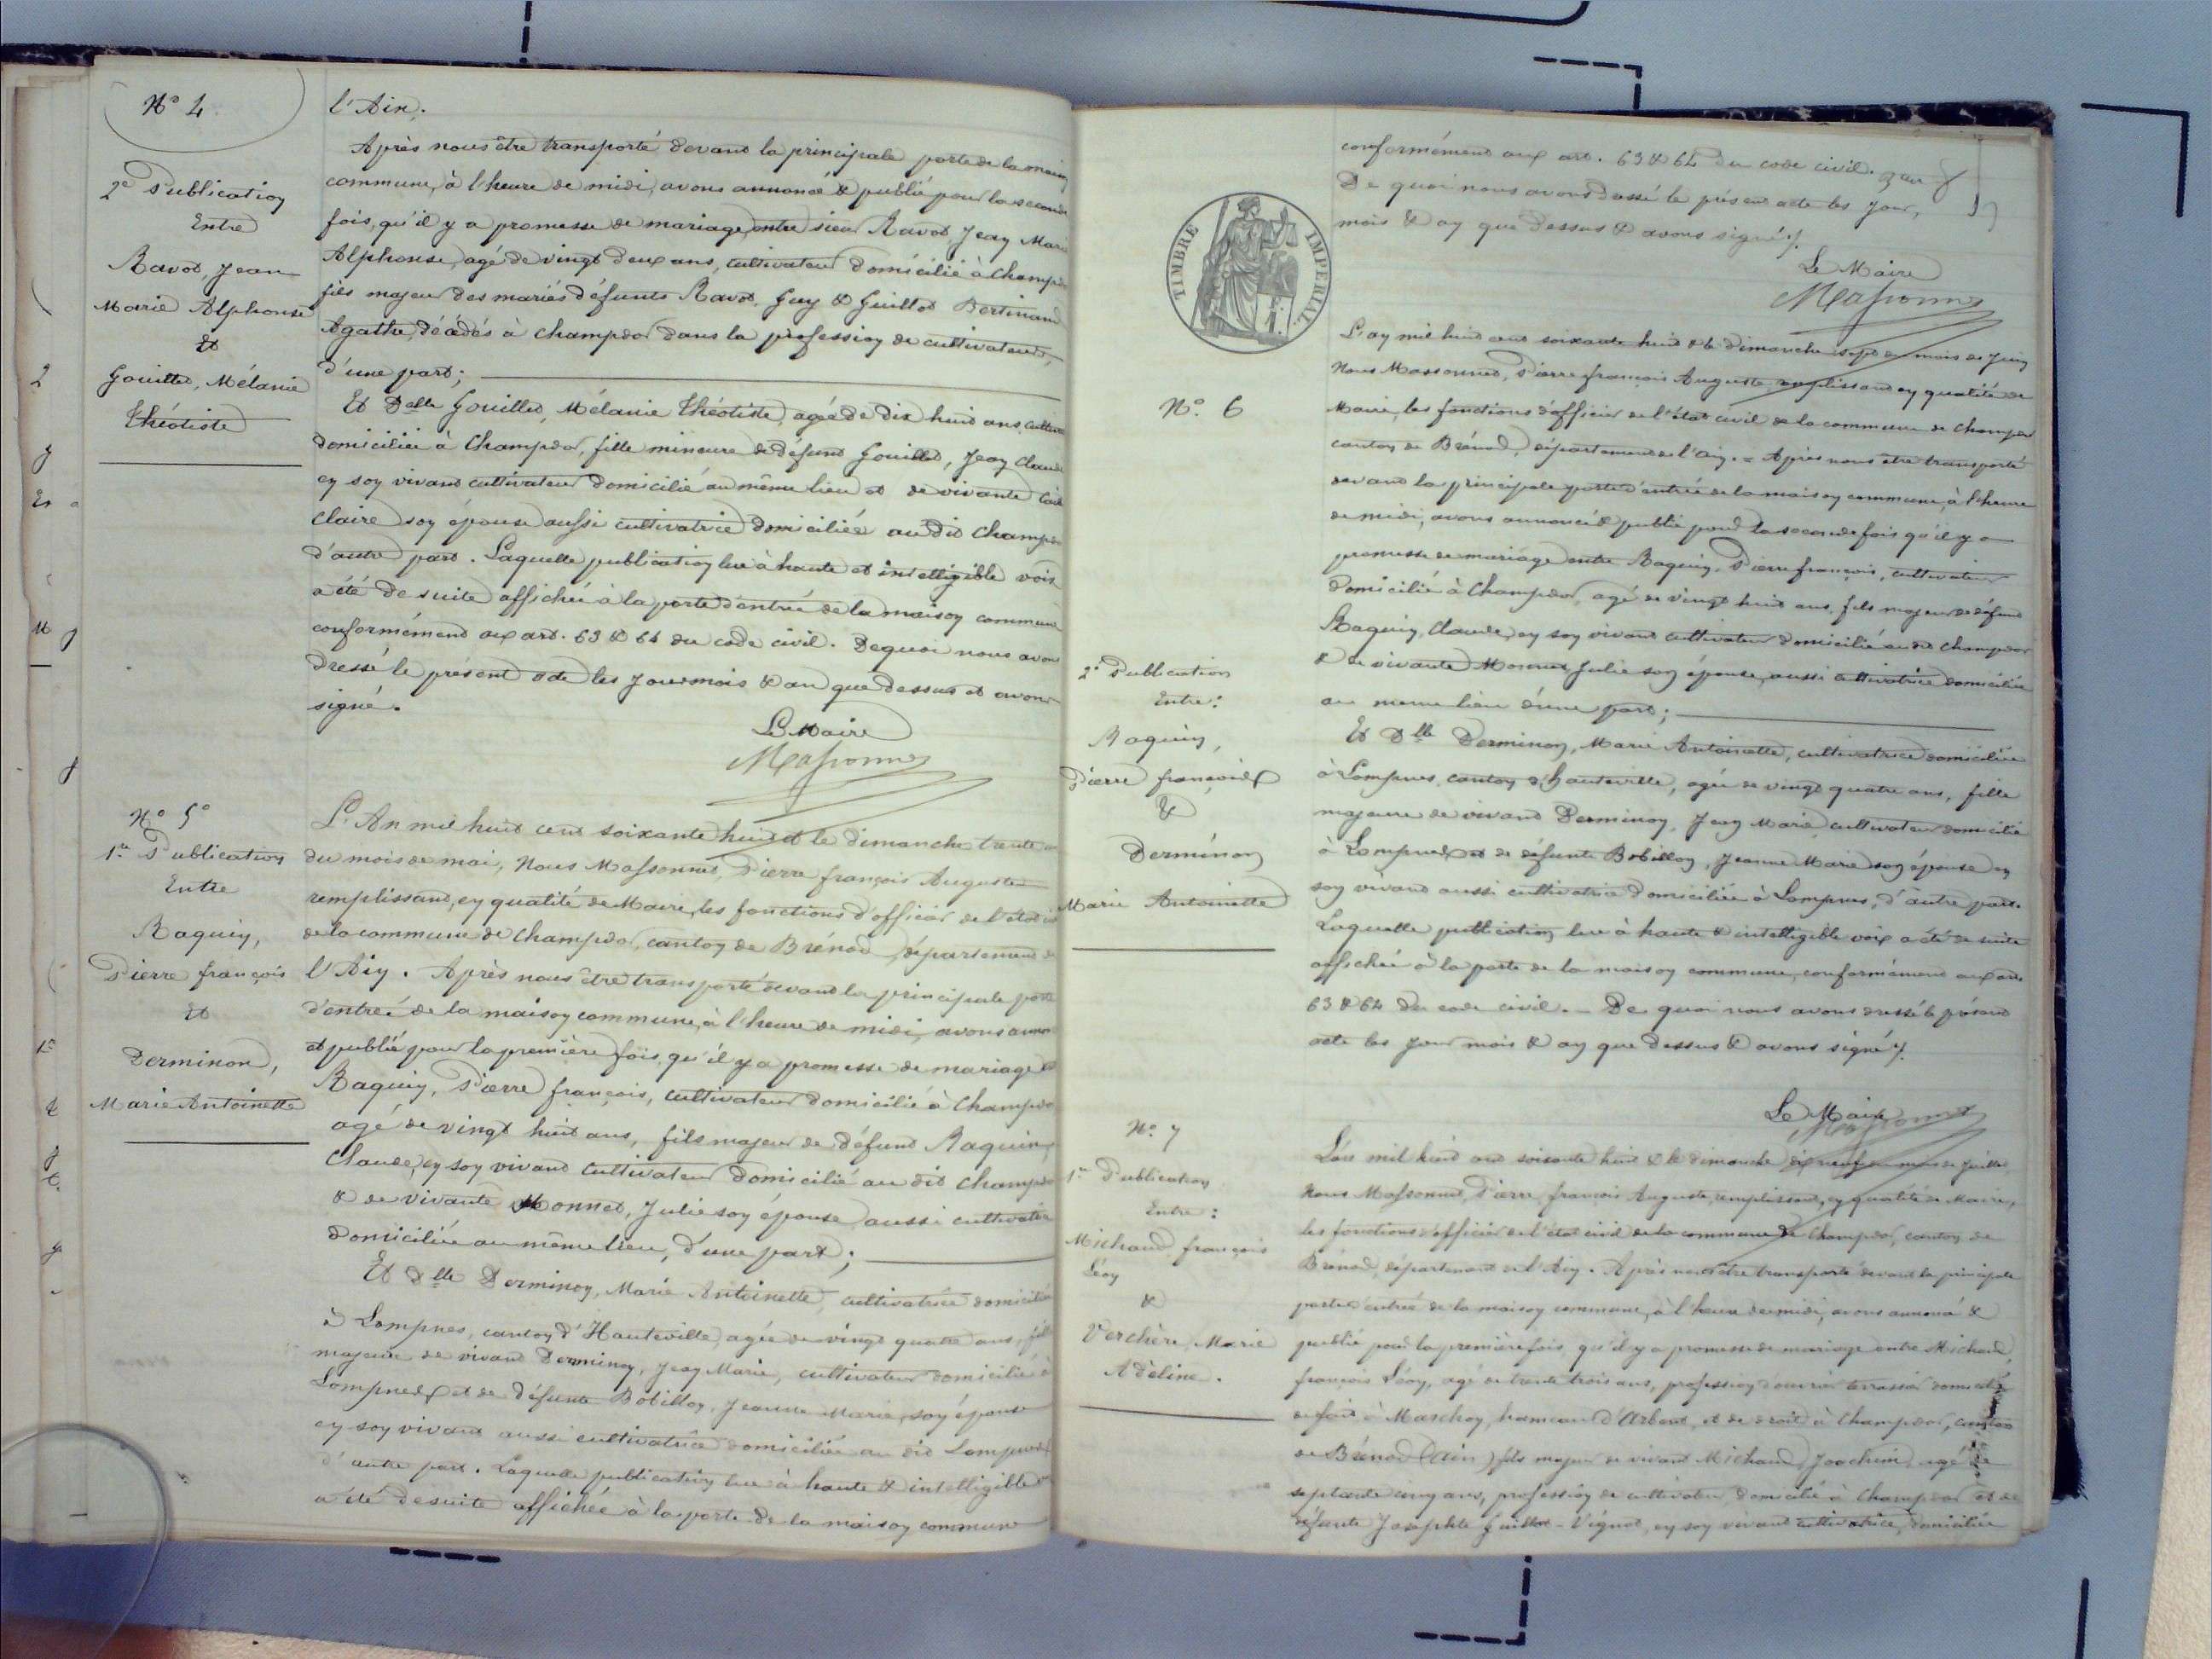 N° 4
2e Publication
Entre
Ravot, Jean
Marie Alphonse
Et
Gouillot, Mélanie
Théotiste
l'Ain.
Après nous être transporté devant la principale porte de la maison
commune, à l'heure de midi, avons annoncé & publié pour la seconde
fois, qu'il y a promesse de mariage entre sieur Ravot, Jean Marie
Alphonse, agé de vingt deux ans, cultivateur domicilié à Champdor
fils majeur des mariés défunts Ravot, Guy & Guillot Bertinand
Agathe, décédés à champdor dans la profession de cultivateurs,
d'une part;
Et Delle Gouillot, Mélanie Théotiste, agée de dix huit ans,
domiciliée à Champdor, fille mineure de défunt Gouillot, Jean Claude
en son vivant cultivateur domicilié au même lieu et de vivante
Claire son épouse aussi cultivatrice domiciliée au dit Champdor
d'autre part. Laquelle publication lue à haute et intelligible voix
a été de suite affichée à la porte d'entrée de la maison commune
conformément aux art. 63 & 64 du code civil. De quoi nous avons
dressé le présent acte les jour mois & an que dessus et avons
signé.
Le Maire
Massonnet
N° 5
1re Publication
Entre
Raquin,
Pierre françois
Et
Derminon,
Marie Antoinette
L'An mil huit cent soixante huit et le dimanche trente
du mois de mai, Nous Massonnet, Pierre françois Auguste
remplissant, en qualité de Maire, les fonctions d'officier de l'état
de la commune de Champdor, canton de Brénod, département de
l'Ain. Après nous être transporté devant la principale porte
d'entrée de la maison commune, à l'heure de midi, avons
et publié pour la première fois, qu'il y a promesse de mariage
Raquin, Pierre françois, cultivateur domicilié à Champdor
agé de vingt huit ans, fils majeur de défunt Raquin,
Claude, en son vivant cultivateur domicilié au dit Champdor
& de vivante Monnet, Julie son épouse aussi cultivatrice
domiciliée au même lieu, d'une part;
Et Dlle Derminon, Marie Antoinette, cultivatrice domiciliée
à Lompnes, canton d'Hauteville, agée de vingt quatre ans, fille
majeure de vivant Derminon, Jean Marie, cultivateur domicilié à
Lompnes et de défunte Bobillon, Jeanne Marie, son épouse
en son vivant aussi cultivatrice domiciliée au dit Lompnes
d'autre part. Laquelle publication lue à haute & intelligible
a été de suite affichée à la porte de la maison commune
conformément aux art. 63 & 64 du code civil.
De quoi nous avons dressé le présent acte les jour,
mois & an que dessus & avons signé.
Le Maire
Massonnet
TIMBRE IMPERIAL
N° 6
2e Publication
Entre:
Raquin,
Pierre françois
&
Derminon
Marie Antoinette
L'an mil huit cent soixante huit & le dimanche sept du mois de Juin
Nous Massonnet, Pierre françois Auguste remplissant en qualité de
Maire, les fonctions d'officier de l'état civil de la commune de Champdor
canton de Brénod, département de l'Ain. = Après nous être transporté
devant la principale porte d'entrée de la maison commune, à l'heure
de midi, avons annoncé & publié pour la seconde fois qu'il y a
promesse de mariage entre Raquin, Pierre françois, cultivateur
domicilié à Champdor, agé de vingt huit ans, fils majeur de défunt
Raquin, Claude, en son vivant cultivateur domicilié au dit Champdor
& de vivante Monnet Julie son épouse, aussi cultivatrice domiciliée
au meme lieu d'une part;
Et Dlle Derminon, Marie Antoinette, cultivatrice domiciliée
à Lompnes, canton d'hauteville, agée de vingt quatre ans, fille
majeure de vivant Derminon, Jean Marie, cultivateur domicilié
à Lompnes et de défunte Bobillon, Jeanne Marie son épouse en
son vivant aussi cultivatrice domiciliée à Lompnes, d'autre part.
Laquelle publication lue à haute & intelligible voix a été de suite
affichée à la porte de la maison commune, conformément aux art.
63 & 64 du code civil. - De quoi nous avons dressé le présent
acte les jour mois & an que dessus & avons signé.
Le Maire
Massonnet
N° 7
1re Publication
Entre:
Michaud, françois
Léon
&
Verchère, Marie
Adeline.
L'an mil huit cent soixante huit & le dimanche dix neuf du mois de Juillet
Nous Massonnet, Pierre françois Auguste, remplissant, en qualité de Maire,
les fonctions d'officier de l'état civil de la commune de Champdor, canton de
Brénod, département de l'Ain. Après nous être transporté devant la principale
porte d'entrée de la maison commune, à l'heure de midi, avons annoncé &
publié pour la première fois, qu'il y a promesse de mariage entre Michaud,
françois Léon, agé de trente trois ans, profession d'ouvrier terrassier domicilié
de fait à Maschon, hameau d'Arbent, et de droit à Champdor, canton
de Brénod (Ain) fils majeur de vivant Michaud, Joachim, agé de
septante cinq ans, profession de cultivateur, domicilié à Champdor et de
défunte Josephte Guillot-Vignot, en son vivant cultivatrice, domiciliée